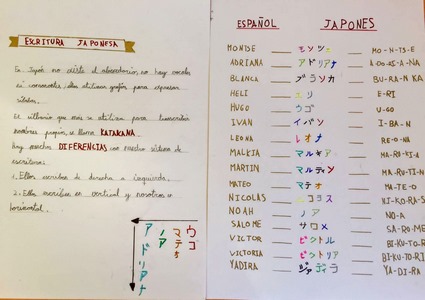 ESCRITURA JAPONESA
En Japón no existe el abecedario, no hay vocales
ni consonantes, ellos utilizan grafías para expresar
sílabas.
El silabario que más se utiliza para transcribir
nombres propios, se llama KATAKANA.
Hay muchas DIFERENCIAS con nuestro sistema de
escritura:
1. Ellos escriben de derecha a izquierda.
2. Ellos escriben en vertical y nosotros en
horizontal.
ウゴ
マテオ
ノア
アドリアナ
ESPAÑOL JAPONES
MONTSE モンツェ MO-N-TS-E
ADRIANA アドリアナ A-DO-RI-A-NA
BLANCA ブランカ BU-RA-N KA
HELI エリ E-RI
HUGO ウゴ U-GO
IVAN イバン I-BA-N
LEONA レオナ RE-O-NA
MALKIA マルキア MA-RU-KI-A
MARTIN マルティン MA-RU-TI-N
MATEO マテオ MA-TE-O
NICOLAS ニコラス NI-KO-RA-S
NOAH ノア NO-A
SALOME サロメ SA-RO-ME
VICTOR ビクトル BI-KU-TO-R
VICTORIA ビクトリア BI-KU-TO-RI
YADIRA ヤディラ YA-DI-RA